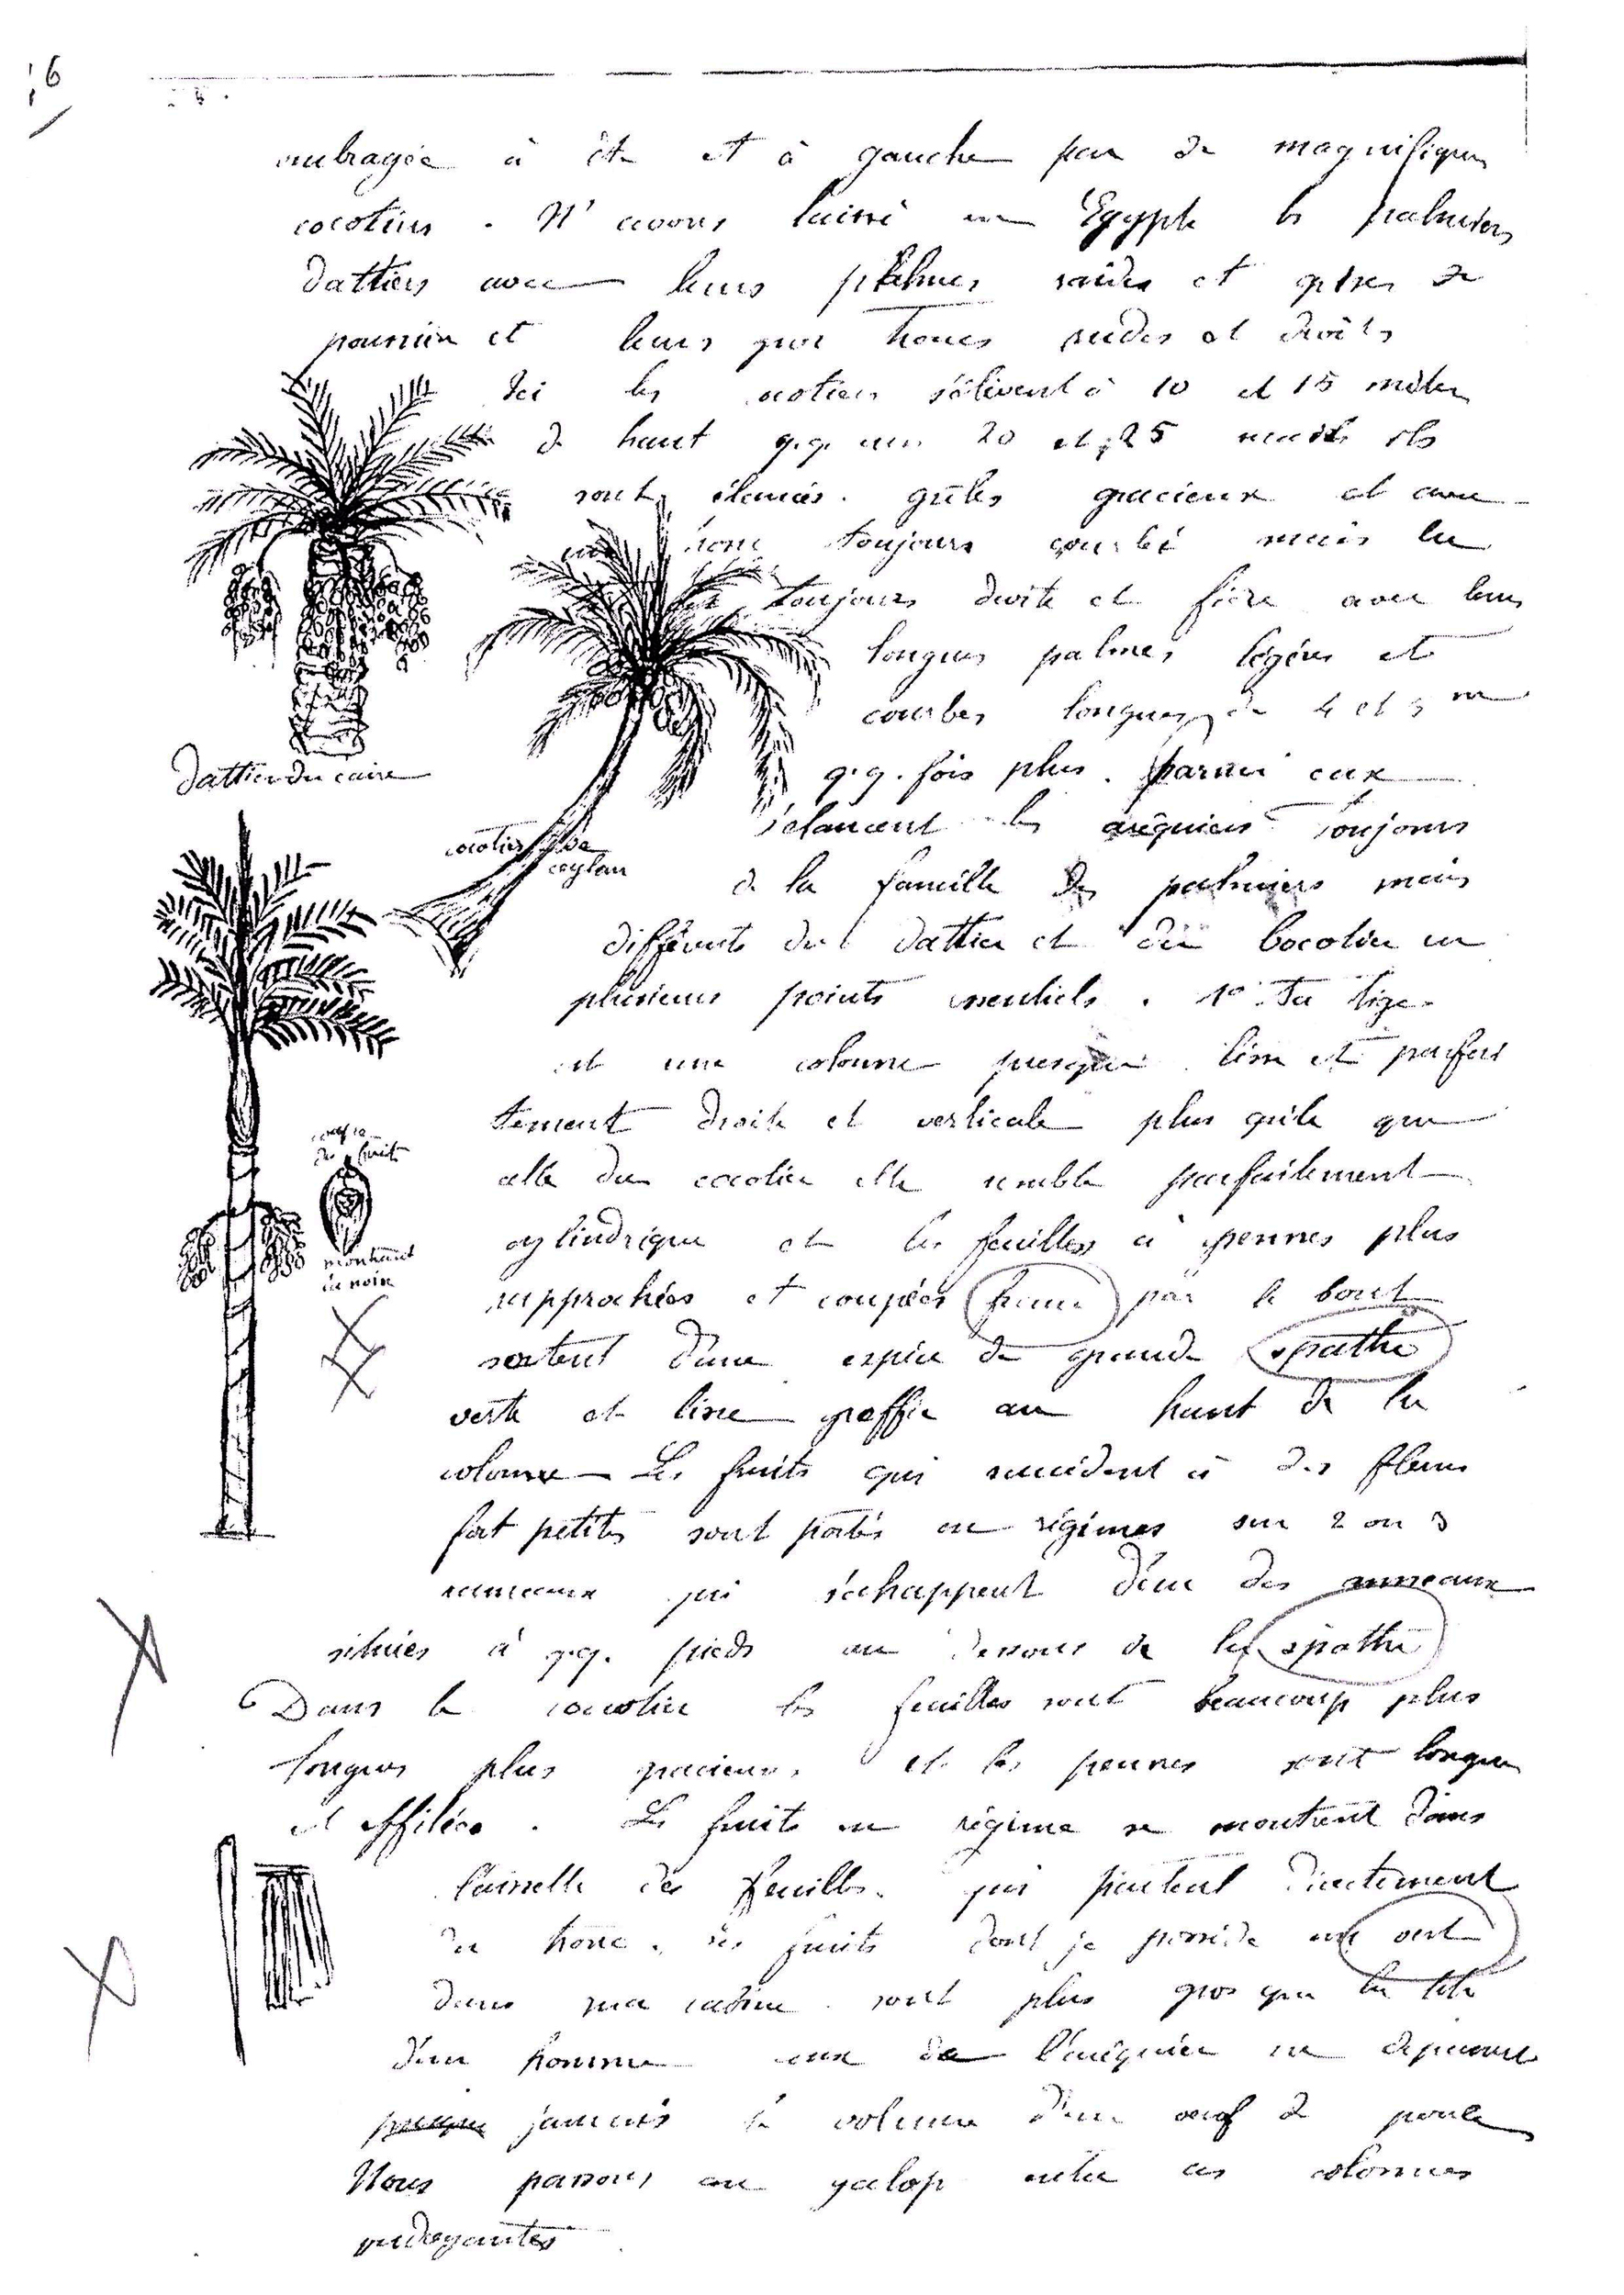 6
ombragée à dte et à gauche par de magnifiques
cocotiers. N' avons laissé en Egypte les palmiers
dattiers avec leurs palmes raides et grises de
poussière et leurs gros troncs rudes et droits
Ici les cocotiers s'élèvent à 10 et 15 mètres
de haut q.q. uns 20 et 25 mais ils
sont élancés. grêles gracieux et avec
un tronc toujours courbé mais la
toujours droite et fière avec leurs
longues palmes légères et
courbes longues de 4 et 5 m
q.q. fois plus. parmi eux
s'élancent les aréquiers toujours
de la famille des palmiers mais
différents du dattier et du Cocotier en
plusieurs points essentiels. 1° Sa tige
est une colonne presque lisse et parfai
tement droite et verticale plus grêle que
celle du cocotier elle semble parfaitement
cylindrique et les feuilles à pennes plus
rapprochées et coupées par le bout
sortent d'une espèce de grande spathe
verte et lisse greffée au haut de la
colonne – Les fruits qui succèdent à des fleurs
fort petites sont portés en régimes sur 2 ou 3
rameaux qui s'échappent d'un des anneaux
situées à q.q. pieds au dessous de la spathe
Dans le cocotier les feuilles sont beaucoup plus
longues plus gracieuses et les pennes sont longues
et effilées. Les fruits en régime se montrent dans
l'aisselle des feuilles. qui partent directement
du tronc. Les fruits dont je possède un vert
dans ma cabine sont plus gros que la tête
d'un homme ceux de l'aréquier ne dépassent
presque jamais le volume d'un oeuf de poule
Nous passons au galop entre ces colonnes
verdoyantes
Dattier du caire
cocotier de
ceylan
coupe
du fruit
montrant
la noix